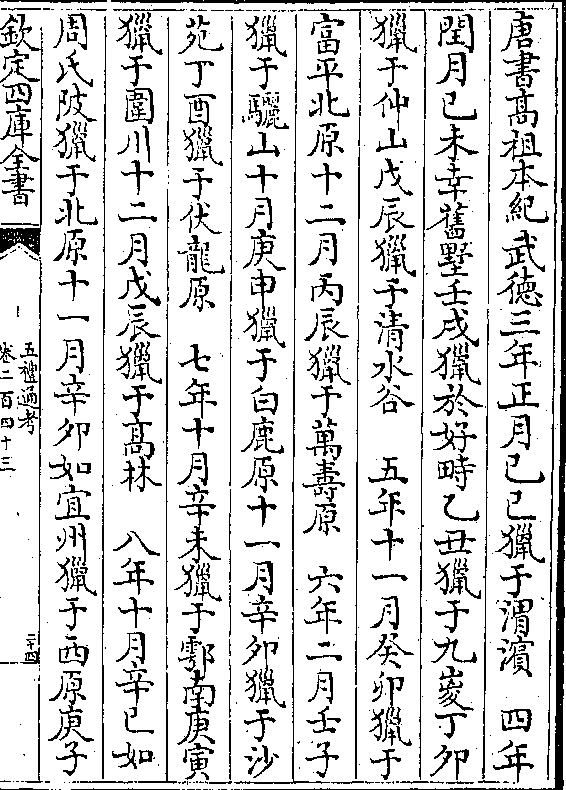 唐書髙祖本紀武徳三年正月己巳獵于渭濵　四年
閏月己未幸舊墅壬戌獵於好畤乙丑獵于九嵏丁卯
獵于仲山戊辰獵于清水谷　五年十一月癸卯獵于
富平北原十二月丙辰獵于萬壽原　六年二月壬子
獵于驪山十月庚申獵于白鹿原十一月辛卯獵于沙
苑丁酉獵于伏龍原　七年十月辛未獵于鄠南庚寅
獵于圍川十二月戊辰獵于髙林　八年十月辛巳如
周氏陂獵于北原十一月辛卯如宜州獵于西原庚子
欽定四庫全書
五禮通考
卷二百四十三
二十四